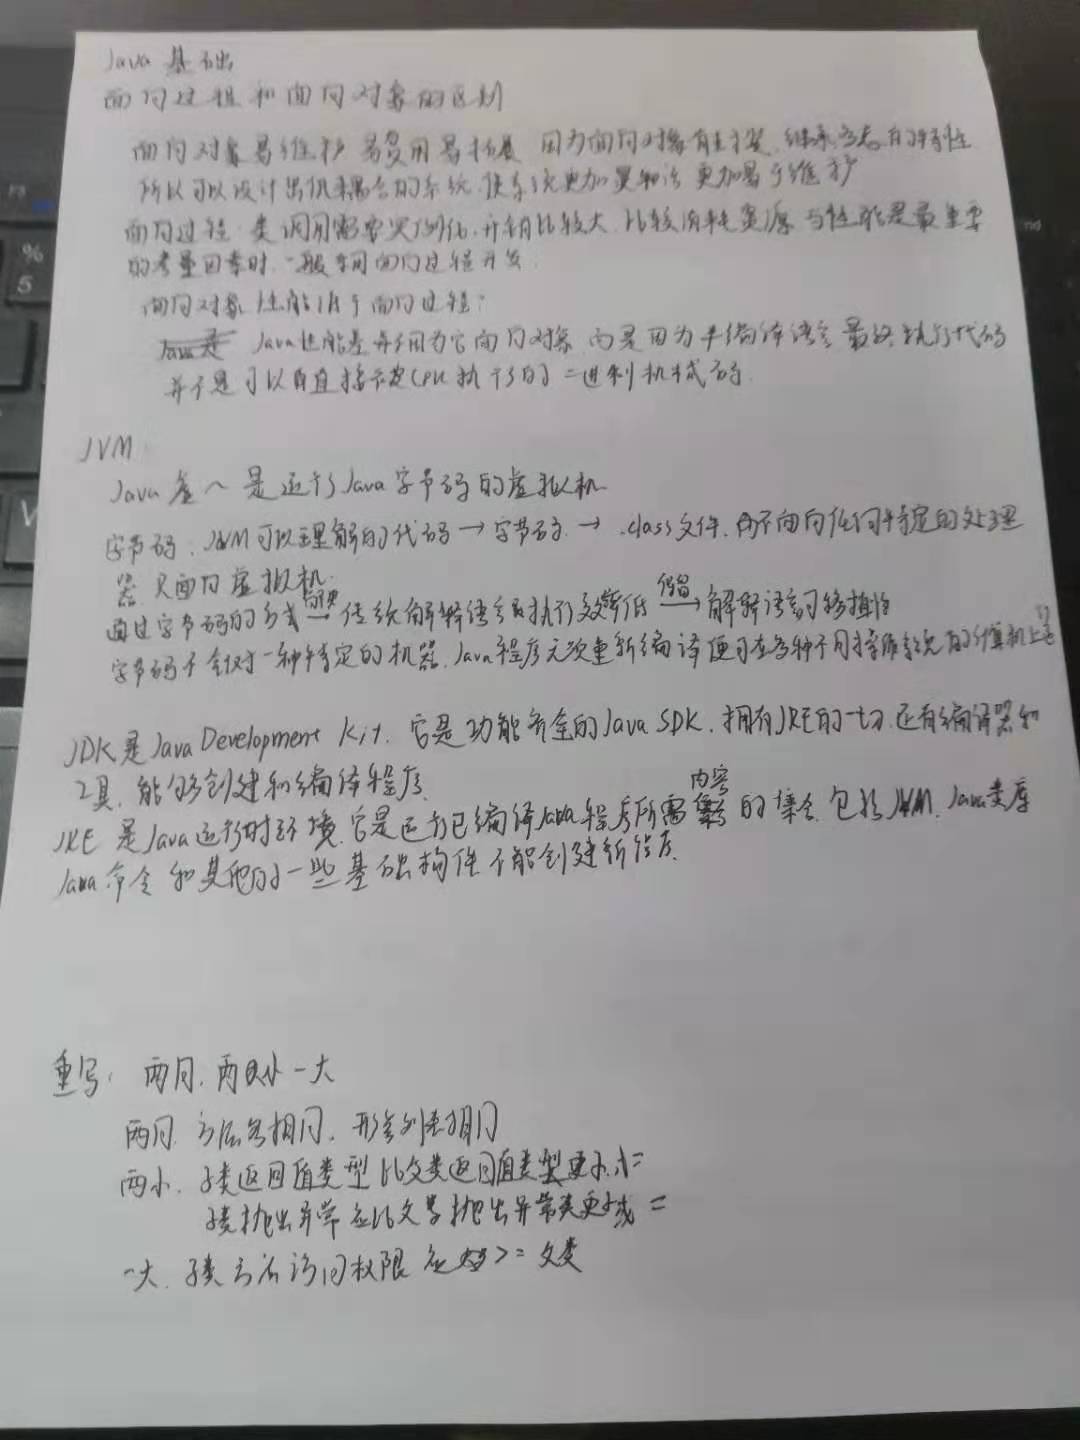 Java基础
面向过程和面向对象的区别
面向对象易维护 易复用 易拓展 因为面向对象有封装,继承,多态有的特性
所以可以设计出低耦合的系统.使系统更加灵活 更加易于维护
面向过程:类调用需要实例化,开销比较大,比较消耗资源 当性能是最重要
的考量因素时.一般采用面向过程开发.
面向对象性能低于面向过程?
Java是 Java性能差并不因为它面向对象,而是因为半编译语言 最终执行代码
并不是可以直接被CPU执行的二进制机械码.
JVM
Java虚~是运行Java字节码的虚拟机
字节码:JVM可以理解的代码→字节码→.class文件.而不面向任何特定的处理
器.只面向虚拟机.
通过字节码的方式 解决→传统解释语言执行效率低 保留→解释语言可移植性
字节码不针对一种特定的机器.Java程序无须重新编译便可在多种不同操作系统的计算机上运行
JDK是Java Development Kit.它是功能齐全的Java SDK.拥有JRE的一切.还有编译器和
工具.能够创建和编译程序.
JRE是Java运行时环境.它是运行已编译Java程序所需内容的集合.包括JVM,Java类库
Java命令和其他的一些基础构件 不能创建新程序.
重写:两同.两小一大
两同.方法名相同.形参列表相同
两小.子类返回值类型比父类返回值类型更小或=
子类抛出异常应比父类抛出异常类更小或=
一大.子类方法访问权限应>=父类